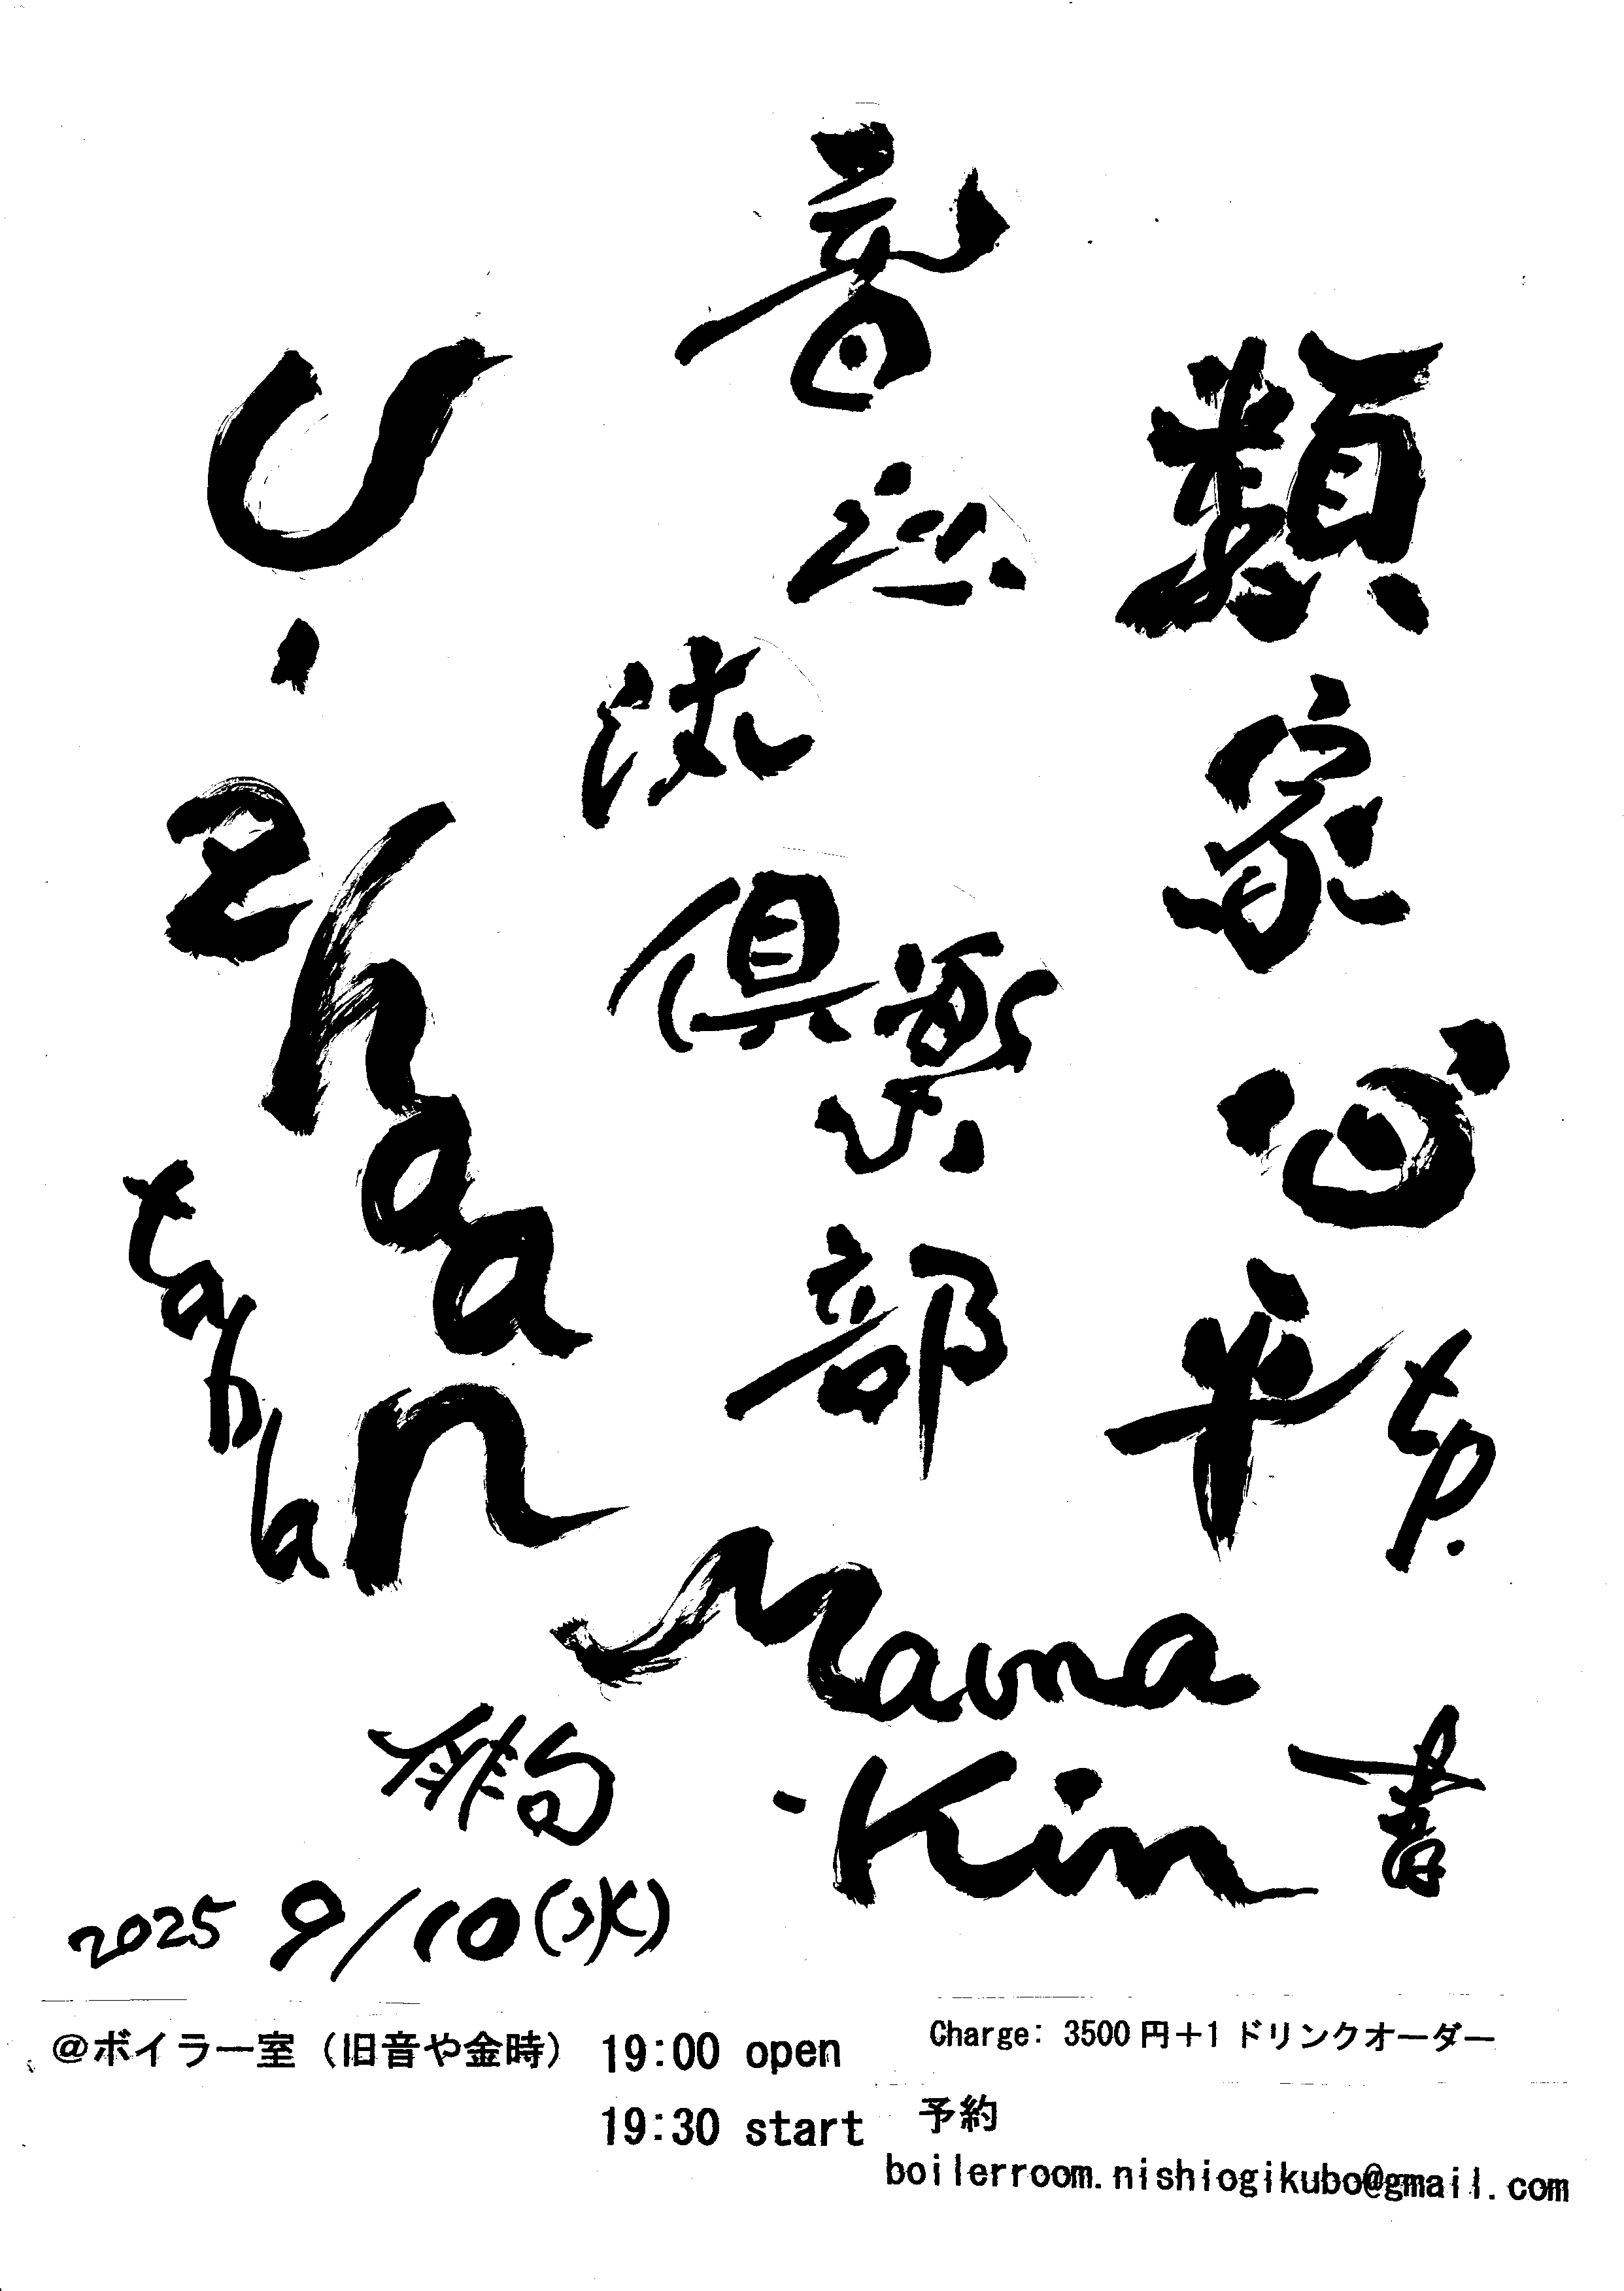 類家心平 tp.
音
倶楽部
U-zhaan
tabla
Mauna
-Kin 書
俳句
2025 9/10(水)
@ボイラー室（旧音や金時） 19:00 open
19:30 start
Charge: 3500円＋1ドリンクオーダー
予約
boilerroom.nishiogikubo@gmail.com